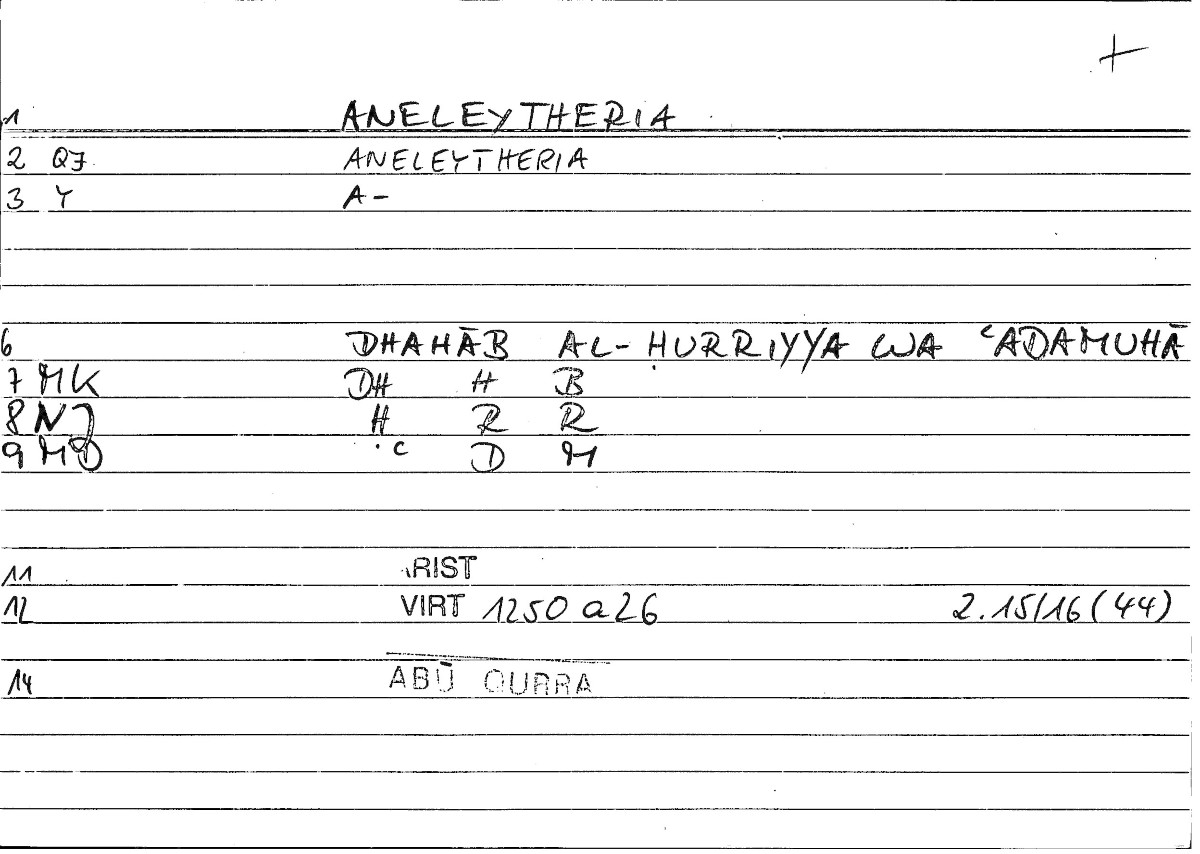 +
1 ANELEYTHERIA
2 QJ ANELEYTHERIA
3 Y A-
6 DHAHĀB AL-ḤURRIYYA WA ʿADAMUHĀ
7 MK DH H B
8 NJ Ḥ R R
9 MD ʿ D M
11 ARIST
12 VIRT 1250 a 26 2.15/16 (44)
14 ABŪ QURRA